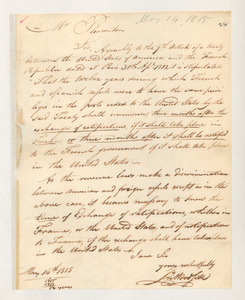 May 14, 1815
Mr. Thornton
Sir, Agreeably to the 7th Article of a treaty
between the United States of America and the French
Republic dated at Paris 30th Apl. 1803 it is stipulated
that the twelve years during which French
and Spanish vessels were to have the same privi
leges in the ports ceded to the United States by the
said Treaty shall commence three months after the
exchange of ratifications if it shall take place in
or three months after it shall be notified
to the French government if it shall take place
in the United States—
As the revenue laws make a discrimination
between American and foreign vessels except in the
above case, it becomes necessary to know the
time of Exchange of ratifications, whether in
France, or the United States, and of notification
to France, if the exchange shall have taken place
in the United States
I am Sir
yours respectfully
May 14th 1815
1815
1803
12 years